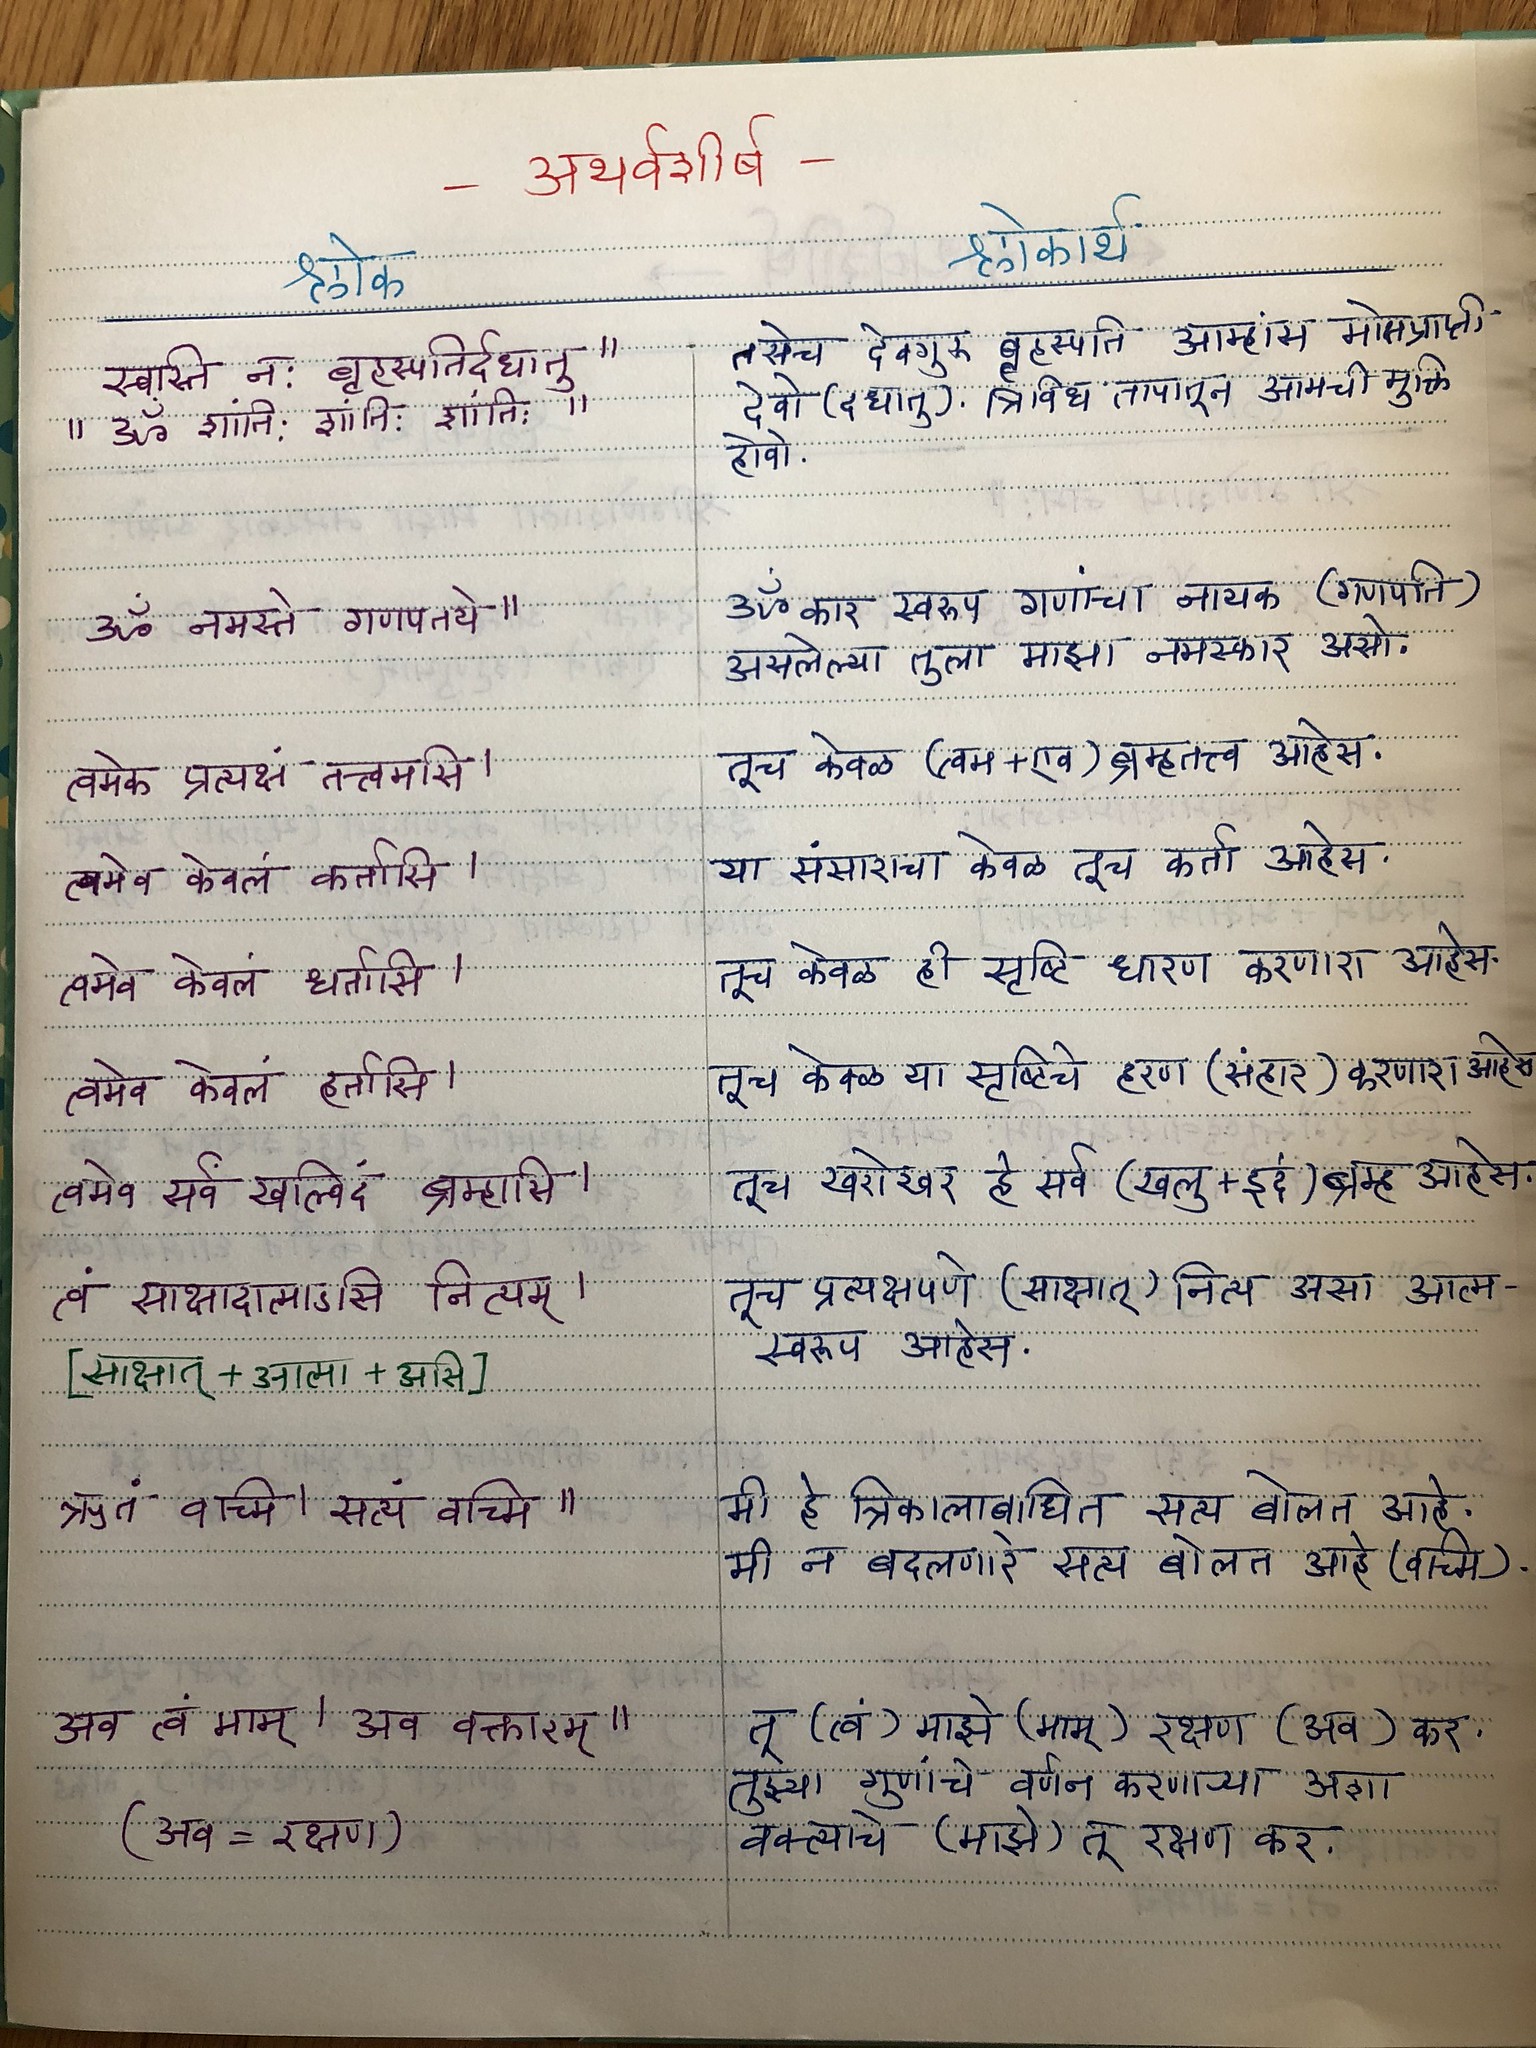 - अथर्वशीर्ष -
श्लोक श्लोकार्थ
स्वस्ति नः बृहस्पतिर्दधातु ॥ तसेच देवगुरू बृहस्पति आम्हांस मोक्षप्राप्ती
॥ ॐ शांतिः शांतिः शांतिः ॥ देवो (दधातु). त्रिविध तापातून आमची मुक्ति
होवो.
ॐ नमस्ते गणपतये ॥ ॐ कार स्वरूप गणांचा नायक (गणपति)
असलेल्या तुला माझा नमस्कार असो.
त्वमेक प्रत्यक्षं तत्त्वमसि । तूच केवळ (त्वम + एव) ब्रम्हतत्त्व आहेस.
त्वमेव केवलं कर्तासि । या संसाराचा केवळ तूच कर्ता आहेस.
त्वमेव केवलं धर्तासि । तूच केवळ ही सृष्टि धारण करणारा आहेस.
त्वमेव केवलं हर्तासि । तूच केवळ या सृष्टिचे हरण (संहार) करणारा आहेस
त्वमेव सर्वं खल्विदं ब्रम्हासि । तूच खरोखर हे सर्व (खलु + इदं) ब्रम्ह आहेस.
त्वं साक्षादात्माऽसि नित्यम् । तूच प्रत्यक्षपणे (साक्षात्) नित्य असा आत्म-
[साक्षात् + आत्मा + असि] स्वरूप आहेस.
ऋतं वच्मि । सत्यं वच्मि ॥ मी हे त्रिकालाबाधित सत्य बोलत आहे.
मी न बदलणारे सत्य बोलत आहे (वच्मि).
अव त्वं माम् । अव वक्तारम् ॥ तू (त्वं) माझे (माम्) रक्षण (अव) कर.
तुझ्या गुणांचे वर्णन करणाऱ्या अशा
(अव = रक्षण) वक्त्याचे (माझे) तू रक्षण कर.